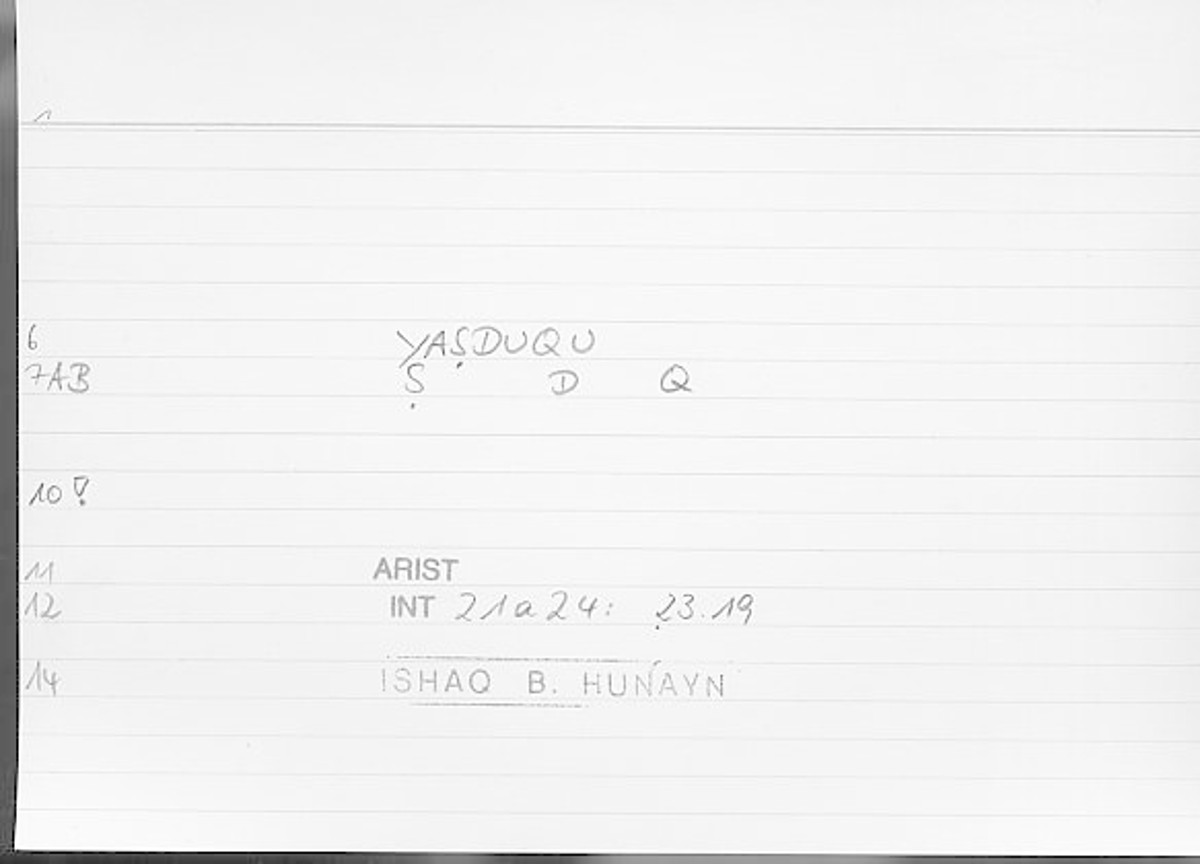 1
6 YAṢDUQU
7AB Ṣ D Q
10!
11 ARIST
12 INT 21a24: 23.19
14 ISHAQ B. HUNAYN